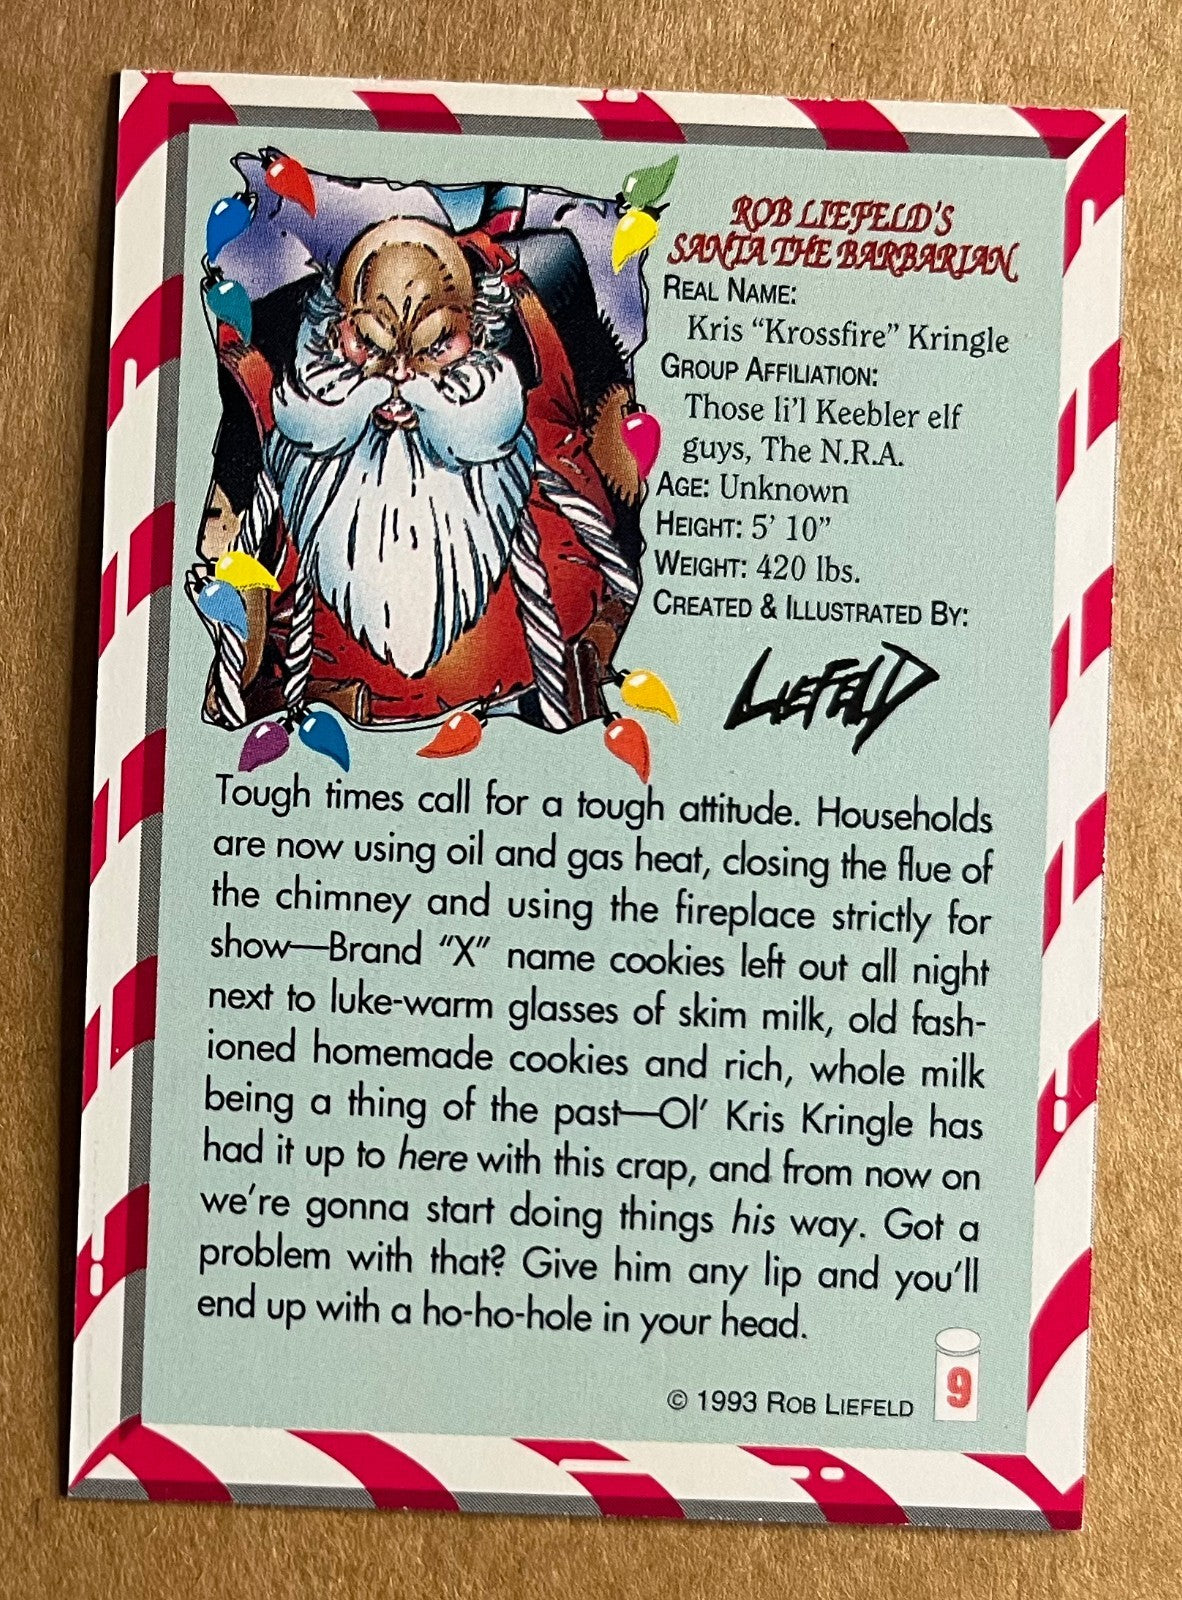 ROB LIEFELD'S
SANTA THE BARBARIAN
REAL NAME:
Kris “Krossfire” Kringle
GROUP AFFILIATION:
Those li'l Keebler elf
guys, The N.R.A.
AGE: Unknown
HEIGHT: 5’ 10”
WEIGHT: 420 lbs.
CREATED & ILLUSTRATED BY:
LIEFELD
Tough times call for a tough attitude. Households
are now using oil and gas heat, closing the flue of
the chimney and using the fireplace strictly for
show—Brand “X” name cookies left out all night
next to luke-warm glasses of skim milk, old fash-
ioned homemade cookies and rich, whole milk
being a thing of the past—Ol’ Kris Kringle has
had it up to here with this crap, and from now on
we’re gonna start doing things his way. Got a
problem with that? Give him any lip and you’ll
end up with a ho-ho-hole in your head.
© 1993 ROB LIEFELD
9